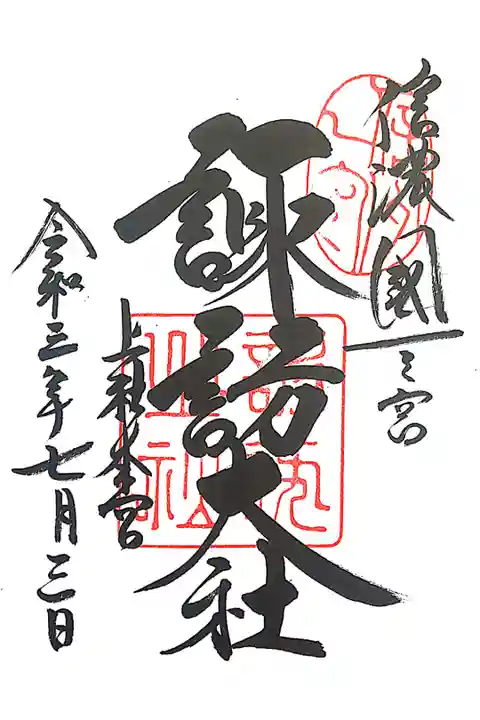 信濃國一之宮
諏訪大社
上社本宮
令和三年七月三日